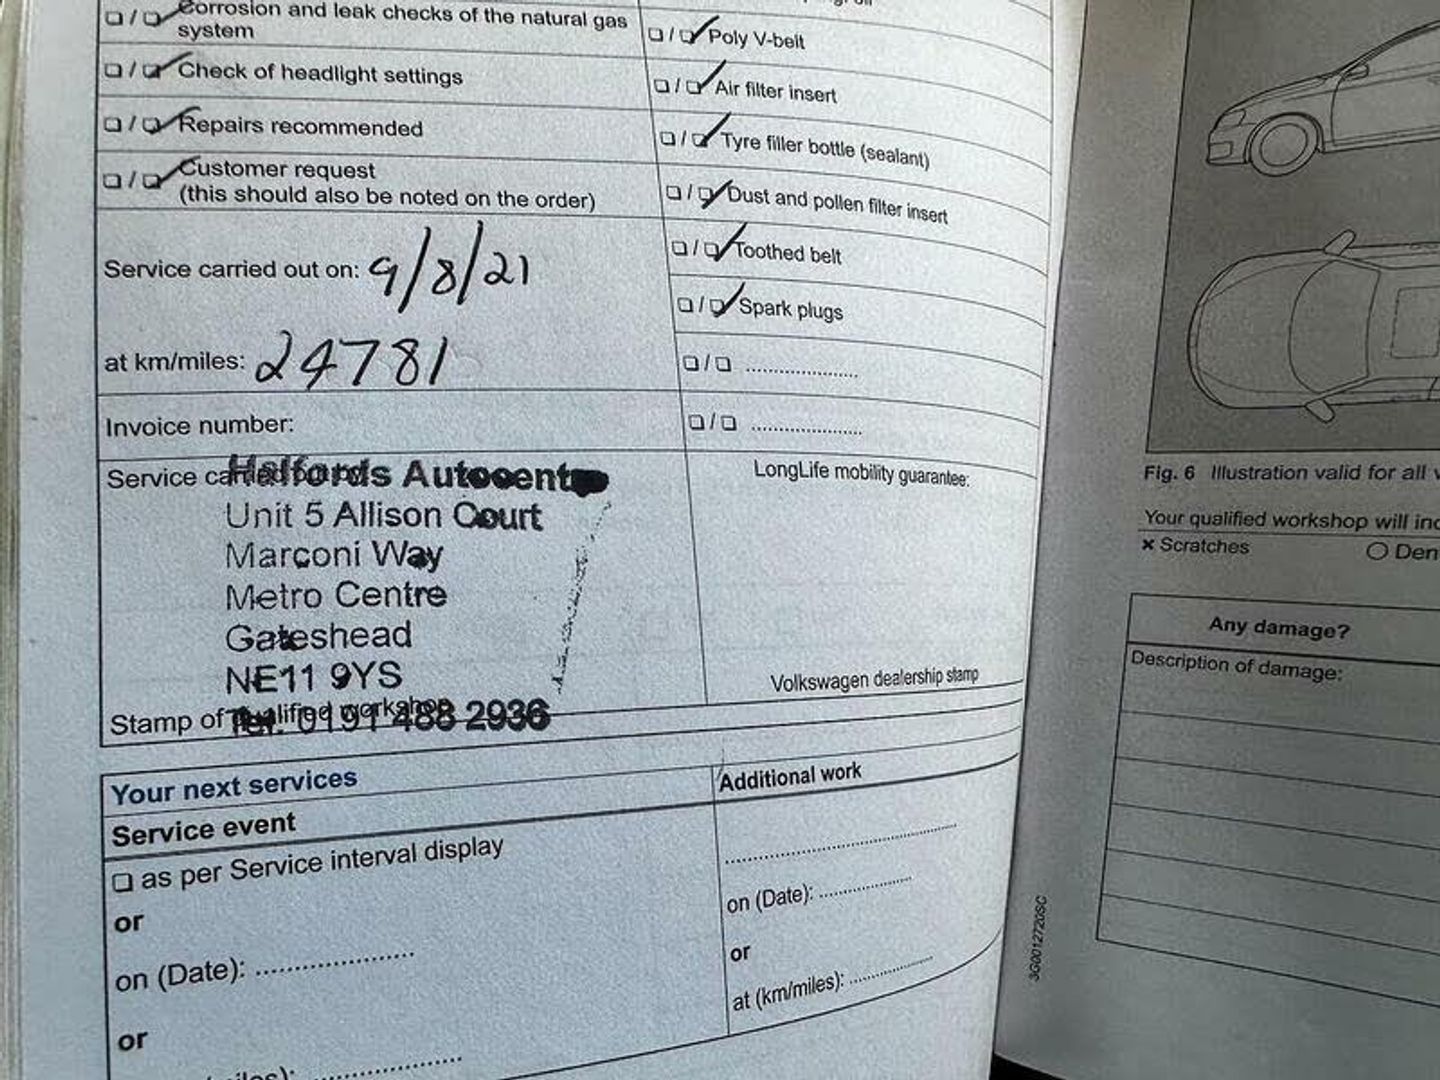 Corrosion and leak checks of the natural gas
system
Check of headlight settings
Repairs recommended
Customer request
(this should also be noted on the order)
Service carried out on: 9/8/21
at km/miles: 24781
Invoice number:
Poly V-belt
Air filter insert
Tyre filler bottle (sealant)
Dust and pollen filter insert
Toothed belt
Spark plugs
....................
....................
Service
Halfords Autocentre
Unit 5 Allison Court
Marconi Way
Metro Centre
Gateshead
NE11 9YS
Tel: 0191 488 2936
Stamp of qualified workshop
LongLife mobility guarantee:
Volkswagen dealership stamp
Your next services
Service event
as per Service interval display
or
on (Date): ....................
or
Additional work
....................
on (Date): ....................
or
at (km/miles): ....................
3G0012720SC
Fig. 6 Illustration valid for all
Your qualified workshop will
× Scratches
Any damage?
Description of damage: